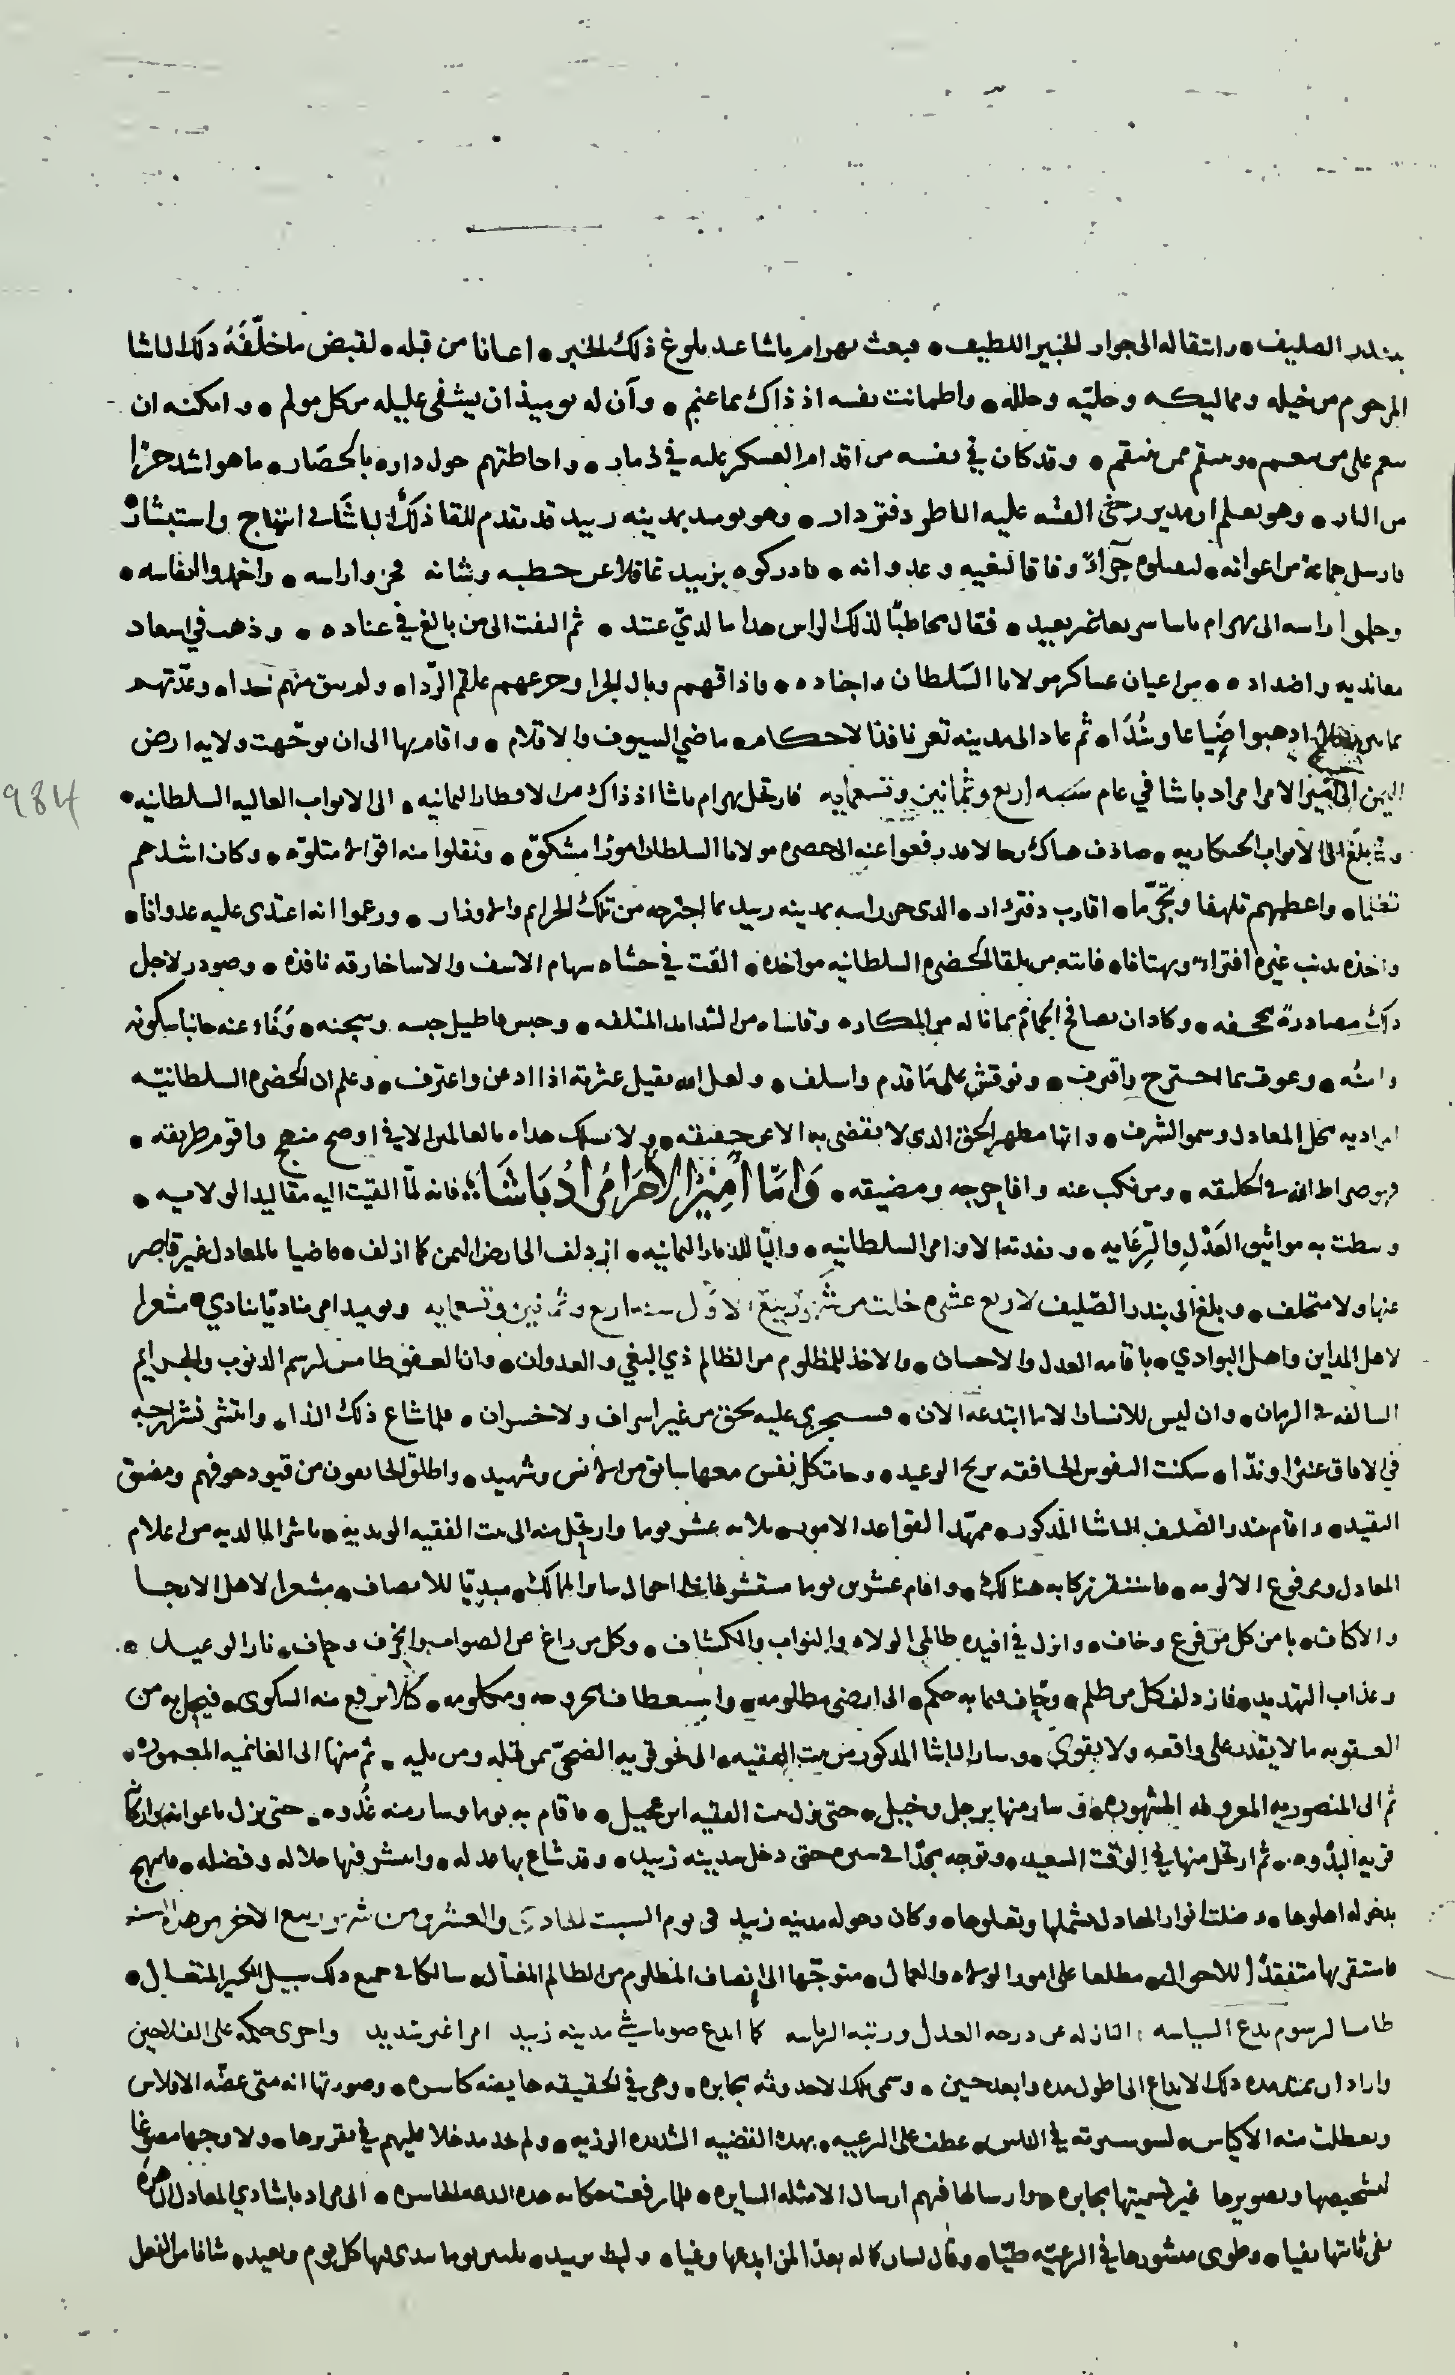 ببندر الصليف • وانتقاله الى جوار الخبير اللطيف • فبعث بهرام باشا عند بلوغ ذلك الخبر • اعيانا من قبله • لقبض ما خلّفه ذلك الباشا
المرحوم من خيله ومماليكه وحليّه وحلله • واطمانت نفسه اذ ذاك بما غنم • وآن له يوميذ ان يشفى غليله من كل مولم • وامكنه ان
على من • وينتقم ممن ينتقم • وقد كان في نفسه من اقدام العسكر عليه في ذمار • واحاطتهم حول داره بالحصار • ما هو اشد حرّا
من النار • وهو يعلم ان مدير رحى الفتنه عليه الناظر دفتردار • وهو يوميد بمدينه زبيد قد تقدم للقا ذلك الباشا في ابتهاج واستبشار
فارسل جماعة من اعوانه • جزآءً وفاقا لبغيه وعدوانه • فادركوه بزبيد غافلا عن خطبه وشانه فحزوا راسه • واخمدوا انفاسه •
وحملوا راسه الى بهرام باشا سريعا غير بعيد • فقال مخاطبًا لذلك الراس هذا ما لديّ عتيد • ثم التفت الى من بالغ في عناده • وذهب في اسعاد
معانديه واضداده • من اعيان عساكر مولانا السّلطان واجناده • فاذاقهم وبال الجزا وجرعهم علقم الرّدا • ولم يبق منهم احدا • وعدّتهم
ذهبوا ضَياعا وسُدًا • ثم عاد الى مدينه تعز نافذ الاحكام • ماضي السيوف والاقلام • واقام بها الى ان توجّهت ولايه ارض
اليمن الى امير الامرا مراد باشا في عام سنه اربع وثمانين وتسعمايه فارتحل بهرام باشا اذ ذاك من الاقطار اليمانيه • الى الابواب العاليه السلطانيه •
بلغ الى الابواب الخنكاريه • صادف هناك رجالا قد رفعوا عنه الى حضره مولانا السلطان امورًا مشكوّه • ونقلوا منه اقوالا متلوّه • وكان اشدهم
واعظمهم تلهفا وتجرّما • اقارب دفتردار • الذى حز راسه بمدينه زبيد بما اجترحه من تلك الجرايم والاوزار • وزعموا انه اعتدى عليه عدوانا •
واخذه بذنب غيره افتراءً وبهتانا • فاتته من تلقا الحضره السلطانيه مواخذه • القت في حشاه سهام الاسف والاسا خارقه نافذه • وصودر لاجل
ذلك مصادرة مجحفه • وكاد ان يصافح الحِمام بما ناله من المكاره وقاساه من الشدايد المتلفه • وحبس فاطيل حبسه وسجنه •
وامنه • وعوقب بما اجترح واقترف • ونوقش على ما قدم واسلف • ولعل الله يقيل عثرته اذا اذعن واعترف • وعلم ان الحضره السلطانيّه
محل المعادل وسمو الشرف • وانها مظهر الحق الذى لا يقضى به الا عن حقيقه • ولا يسلك هداه بالعالمين الا في اوضح منهج واقوم طريقه •
فهو صراط الله في الخليقه • ومن نكب عنه وافا حرجه ومضيقه • وَامّا اَمِيْرُ الأمَرَا مُرَادُ بَاشَا • فانه لمّا القيت اليه مقاليد الولايه •
ونيطت به مواثيق العَدْلِ والرّعايه • ونفدته الاوامر السلطانيه • واليًا للديار اليمانيه • ازدلف الى ارض اليمن كما ازدلف • ماضيا بالمعادل غير قاصر
عنها ولا متخلف • وبلغ الى بندر الصّليف لاربع عشره خلت من شهر ربيع الاوّل سنه اربع وثمانين وتسعمايه ويوميد امر مناديًا ينادي مشعرا
لاهل المداين واهل البوادي • باقامه العدل والاحسان • والاخذ للمظلوم من الظالم ذي البغي والعدوان • وان العفو طامس لرسم الذنوب والجرايم
السالفه في الزمان • وان ليس للانسان الا ما ابتدعه الان • فسيجرى عليه بحق من غير اسراف ولا خسران • فلما شاع ذلك الندا • وانتشر نشر اَرَجه
في الافاق عنبرًا وندّا • سكنت النفوس الخافقه بريح الوعيد • وجات كل نفس معها سايق من الانس وشهيد • واطلق الخايفون من قيود خوفهم ومضيق
التقييد • واقام ببندر الصّليف الباشا المذكور • ممهّدا لقواعد الامور • ثلاثه عشر يوما وارتحل منه الى بيت الفقيه الزيديه • ناشرا لما لديه من اعلام
المعادل ومرفوع الالويه • فاستقر ركابه هنالك • واقام عشرين يوما مستشرفا على احوال ما والى الممالك • مبديًا للانصاف • مشعرا لاهل الارجا
والاكناف • بامن كل من فزع وخاف • وانزل في افيده ظالمى الولاه والنواب والكشاف • وكل من زاغ عن الصواب وانحرف وحاف • نار الوعيد •
وعذاب التهديد • فازدلف كل من ظلم • وحاف فيما به حكم • الى ارضى مظلومه • واستعطاف مجروحه ومكلومه • كيلا يرفع منه الشكوى • فيحل به من
العقوبه ما لا يقدر على واقعه ولا يقوى • وسار الباشا المذكور من بيت الفقيه • الى نحو قريه الضحيّ بمن قبله ومن يليه • ثم منها الى الغانميه المعموره •
ثم الى المنصوريه المعروفه المشهوره • وسار منها برجل وخيل • حتى نزل بيت الفقيه ابن عجيل • فاقام به يوما وسار منه غدوه • حتى نزل باعوانه
قريه البدْوه • ثم ارتحل منها في الوقت السعيد • وتوجه مجدّا في سيره حتى دخل مدينه زبيد • وقد شاع بها عدله • وانتشر فيها جلاله وفضله • فابتهج
بدخوله اهلوها • وكان دخوله مدينه زبيد في يوم السبت الحادي والعشرين من شهر ربيع الاخر من هذه السنه
فاستقر بها متفقدًا للاحوال • مطلعا على امور الولاه والعمال • متوجّها الى انصاف المظلوم من الظالم • سالكا في جميع ذلك سبيل الكبير المتعال •
طامسا لرسوم بدع السياسه النازله عن درجه العدل ورتبه الرياسه كما ابدع صوباشي مدينه زبيد امرا غير سديد واجرى حكمه على الفلاحين
واراد ان يمتد مده ذلك الابداع الى اطول مده وابعد حين • وسمى تلك الاحدوثه بجابره • وهى في الحقيقه كاسره • وصورتها انه متى عضّه الافلاس
وتعطلت منه الاكياس • لسو سيرته في الناس • عطف على الرعيه • بهذه القضيه الشديده الرزيه • ولم يجد مدخلا عليهم في تقريرها • ولا وجها مصوغا
لتشخيصها وتصويرها غير تسميتها بجابره • وارسالها فيهم ارسال الامثله السايره • فلما رفعت حكايه هذه البدعه الخاسره • الى مراد باشا ذي المعادل الزاهره
نفى ثابتها نفيا • وطوى منشورها في الرعيّه طيّا • وقال لسان حاله بعدًا لمن ابدعها وغيا • ولبث بزبيد • ثلثين يوما يبدى بها كل يوم ويعيد • شافيا من العدل
984